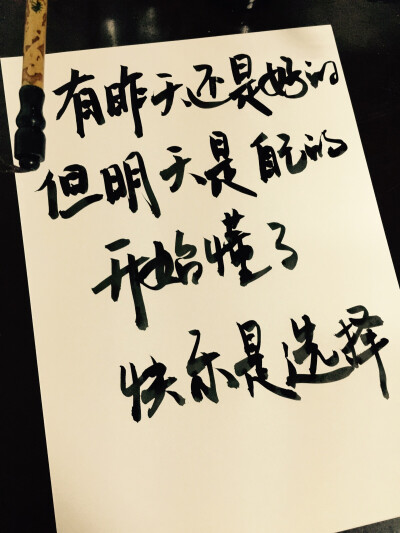 有昨天还是好的
但明天是自己的
开始懂了
快乐是选择